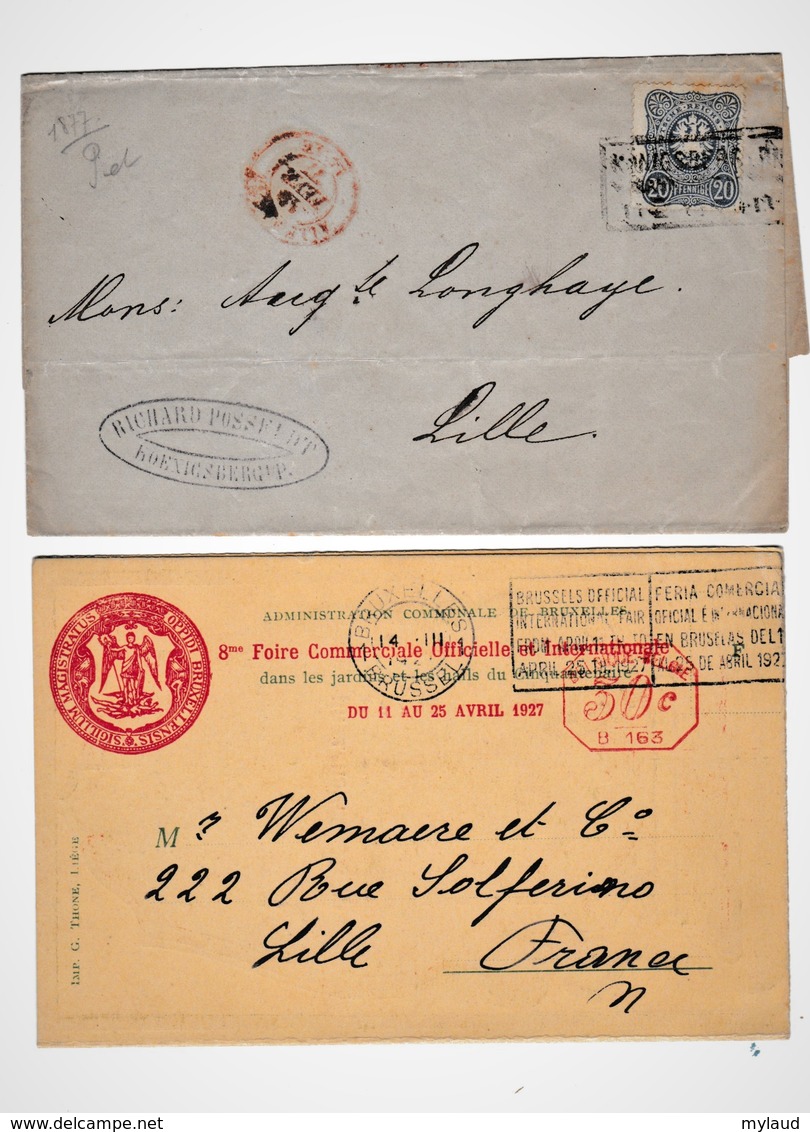 1877.
20 PFENNIGE 20
Mons: Aug te Longhaye.
Lille.
RICHARD POSSELDT
KOENIGSBERG I/P.
SIGILLUM MAGISTRATUS OPPIDI BRUXELLENSIS
ADMINISTRATION COMMUNALE DE BRUXELLES
8me Foire Commerciale Officielle et Internationale
dans les jardins et les halls du Cinquantenaire
DU 11 AU 25 AVRIL 1927
BRUXELLES 1
14 III
BRUSSEL
BRUSSELS OFFICIAL
INTERNATIONAL FAIR
FROM APRIL 11 TH TO
APRIL 25 TH 1927
FERIA COMERCIA
OFICIAL E INTERNACIONA
EN BRUSELAS DEL 1
A 25 DE ABRIL 192
50 c
B 163
Mr Wemaere et Co
222 Rue Solferino
Lille France
n
IMP. G. THONE, LIÉGE
delcampe.net
mylaud